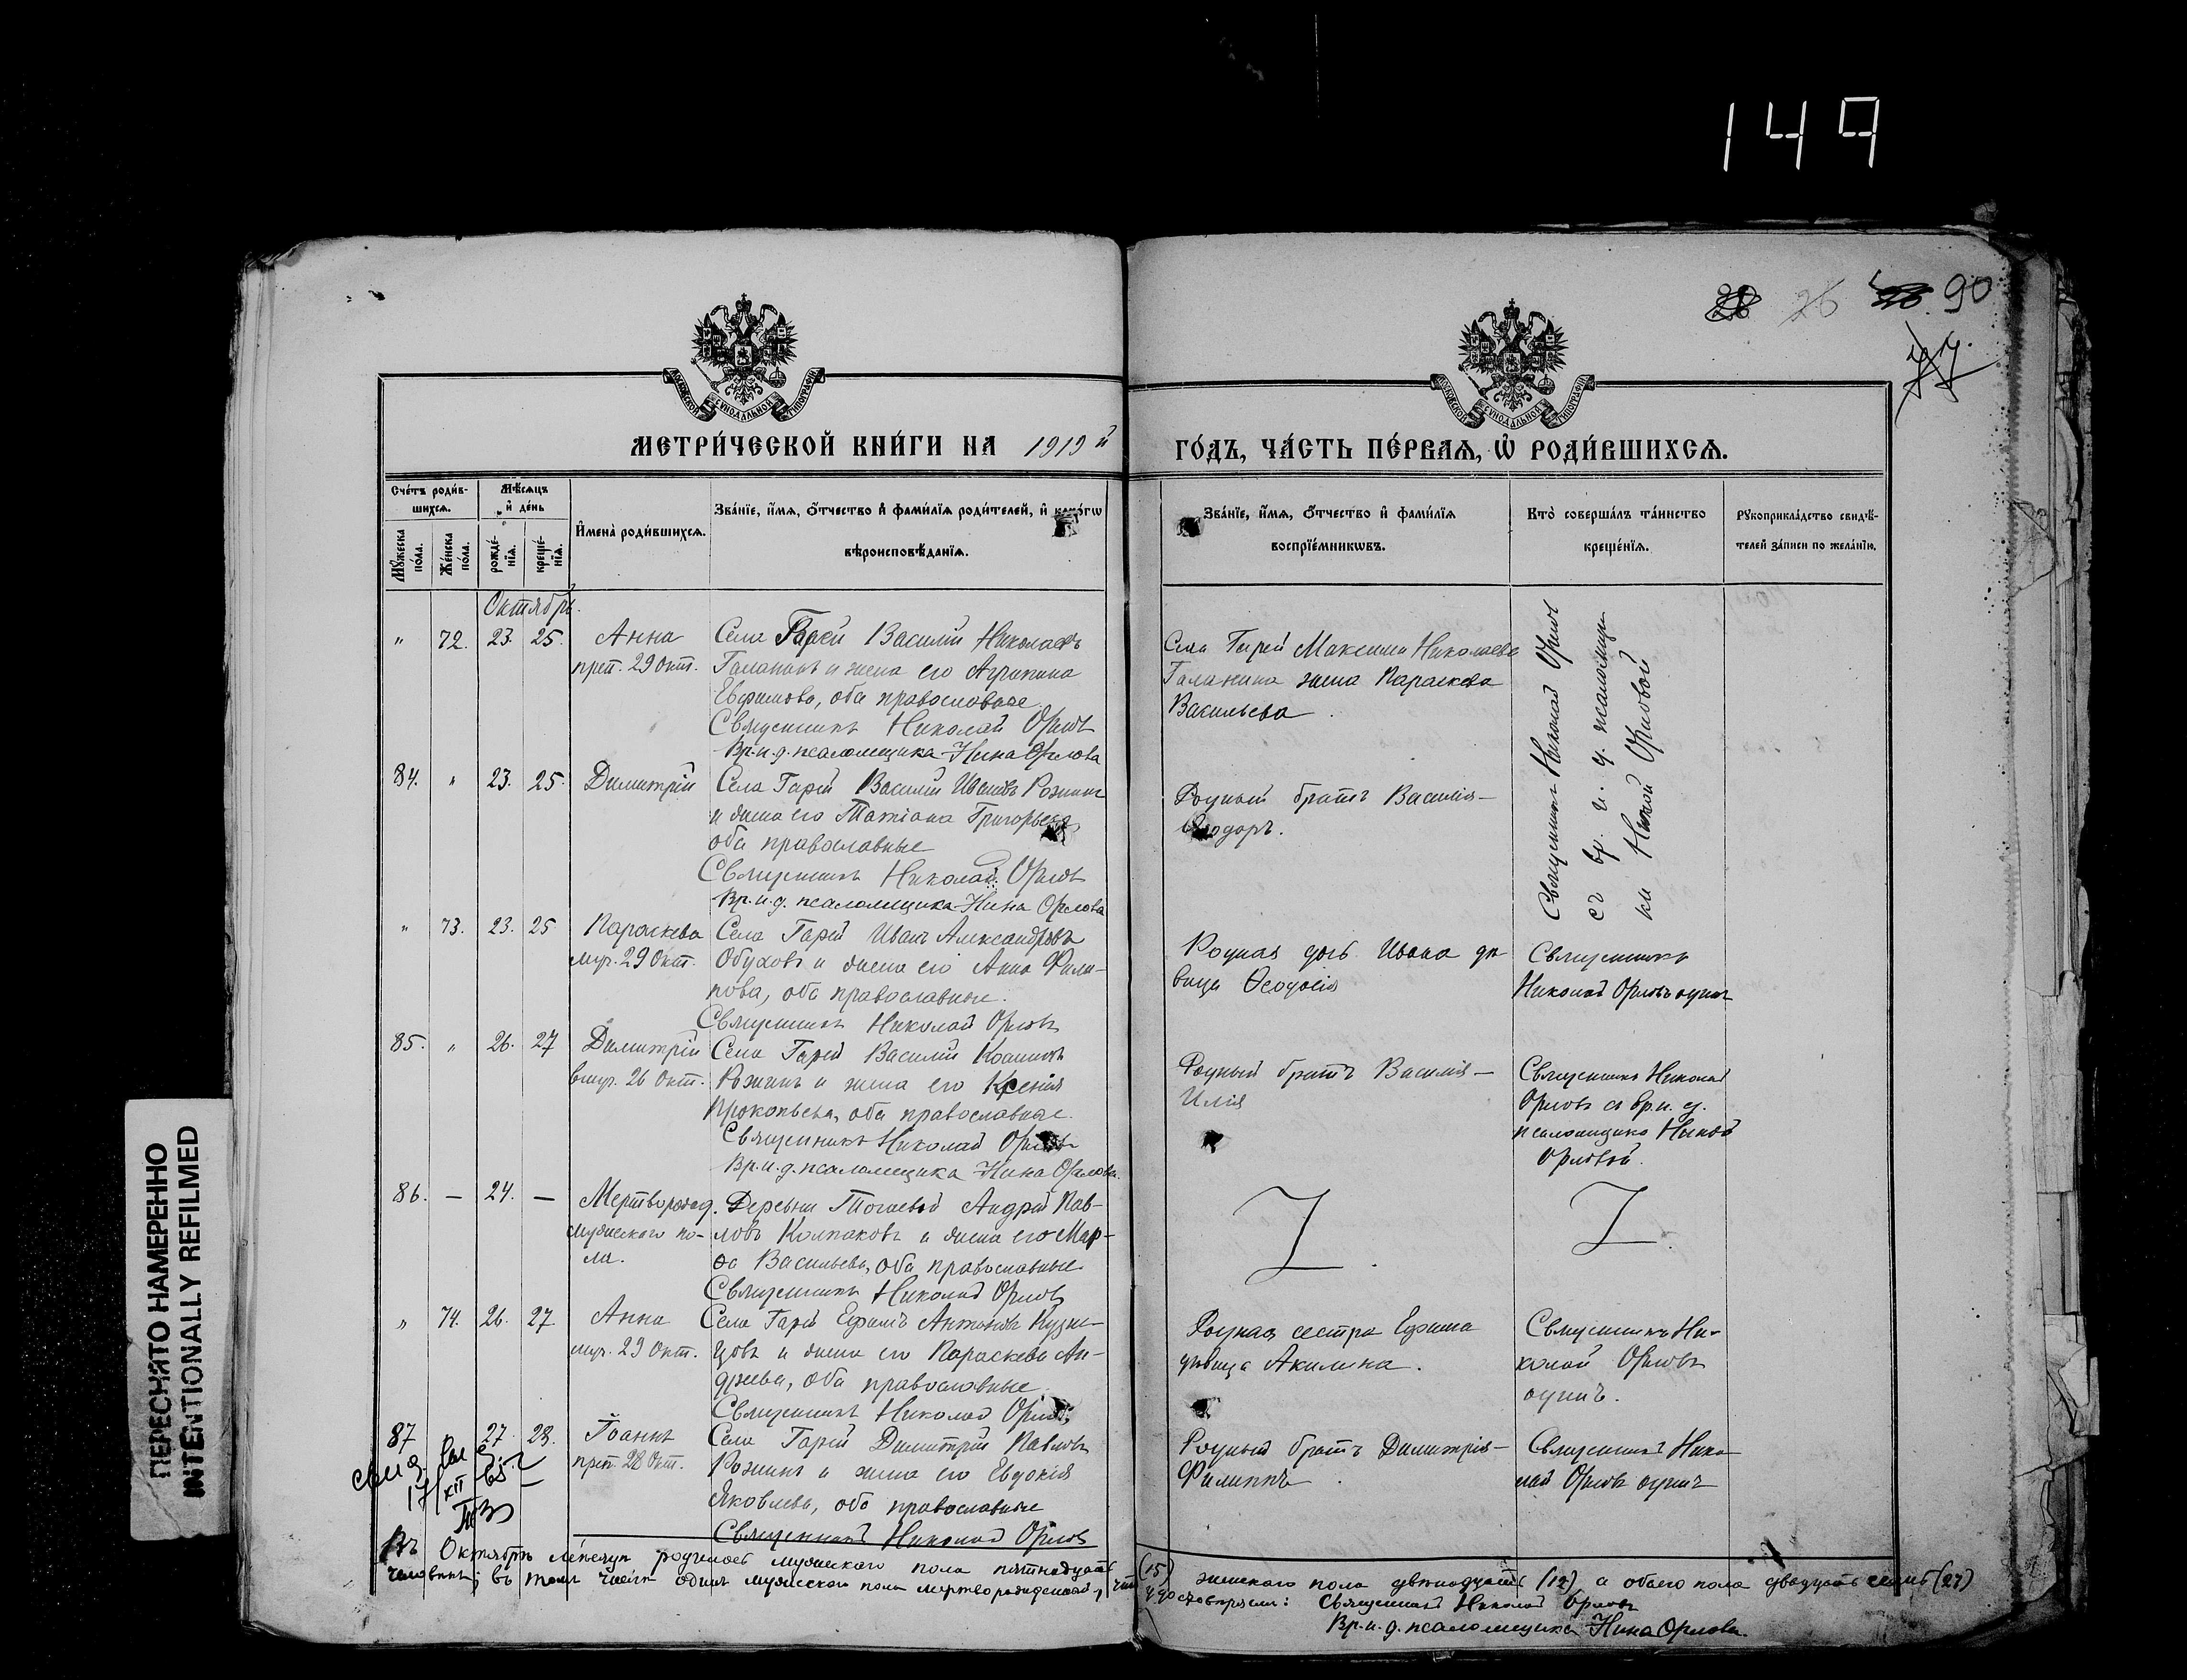 149
26 90
МОСКОВСКОЙ СѴНОДАЛЬНОЙ ТИПОГРАФІИ
МОСКОВСКОЙ СѴНОДАЛЬНОЙ ТИПОГРАФІИ
МЕТРИ́ЧЕСКОЙ КНИ́ГИ НА 1919 й
ГО́ДЪ, ЧА́СТЬ ПЕ́РВАѦ, Ѡ҆ РОДИ́ВШИХСѦ.
Сче́тъ роди́в-
шихсѧ.
Му́жеска по́ла.
Же́нска по́ла.
Мѣ́сѧцъ
и҆ де́нь
рожде́-
нїѧ.
креще́-
нїѧ.
И҆мена̀ роди́вшихсѧ.
Зва́нїе, и҆́мѧ, ѻ҆́тчество и҆ фами́лїѧ роди́телей, и҆ како́гѡ
вѣроисповѣ́данїѧ.
Зва́нїе, и҆́мѧ, ѻ҆́тчество и҆ фами́лїѧ
воспрїе́мникѡвъ.
Кто̀ соверша́лъ та́инство
креще́нїѧ.
Рꙋкоприкла́дство свидѣ́-
телей за́писи по жела́нїю.
Октябрь.
" 72. 23. 25. Анна Села Гарей Василій Николаевъ
преп. 29 Окт. Галанинъ и жена его Агрипина
Евфимова, оба православные.
Священникъ Николай Орловъ
Вр.и.д. псаломщика Нина Орлова
Села Гарей Максима Николаева
Галанина жена Параскева
Васильева.
Священникъ Николай Орловъ
съ вр. и. д. псаломщи-
ки Ниной Орловой
84. " 23. 25. Димитрій Села Гарей Василій Ивановъ Рожинъ
и жена его Татіана Григорьева
оба православные
Священникъ Николай Орловъ
Вр.и.д. псаломщика Нина Орлова
Родный братъ Василія—
Ѳеодоръ.
" 73. 23. 25 Параскева Села Гарей Иванъ Александровъ
муч. 29 Окт. Обуховъ и жена его Анна Фили-
пова, оба православные.
Священникъ Николай Орловъ
Родная дочь Ивана дѣ-
вица Ѳеодосія
Священникъ
Николай Орловъ одинъ
85. " 26. 27 Димитрій Села Гарей Василій Косминъ
вмуч. 26 Окт. Рожинъ и жена его Ксенія
Прокопьева, оба православные.
Священникъ Николай Орловъ
Вр.и.д. псаломщика Нина Орлова.
Родный братъ Василія—
Илія
Священникъ Николай
Орловъ съ вр.и.д.
псаломщика Ниной
Орловой.
86. — 24. — Мертворожд. Деревни Тогаевой Андрей Пав-
мужескаго по- ловъ Колпаковъ и жена его Мар-
ла. ѳа Васильева, оба православные
Священникъ Николай Орловъ
" 74. 26. 27 Анна Села Гарей Ефимъ Антоновъ Кузне-
муч. 29 Окт. цовъ и жена его Параскева Ан-
дреева, оба православные
Священникъ Николай Орловъ
Родная сестра Ефима
дѣвица Акилина.
Священникъ Ни-
колай Орловъ
одинъ.
87 27. 28. Іоаннъ Села Гарей Димитрій Павловъ
преп. 28 Окт. Рожинъ и жена его Евдокія
Яковлева, оба православные
Священникъ Николай Орловъ
Родный братъ Димитрія—
Филиппъ
Священникъ Нико-
лай Орловъ одинъ
17/XII
Въ Октябрѣ мѣсяцѣ родилось мужескаго пола пятнадцать (15) женскаго пола двѣнадцать (12), а обоего пола двадцать семь (27)
человѣкъ; въ томъ числѣ одинъ мужескаго пола мертворожденный, что удостовѣряемъ: Священникъ Николай Орловъ
Вр.и.д. псаломщика Нина Орлова.
ПЕРЕСНЯТО НАМЕРЕННО
INTENTIONALLY REFILMED